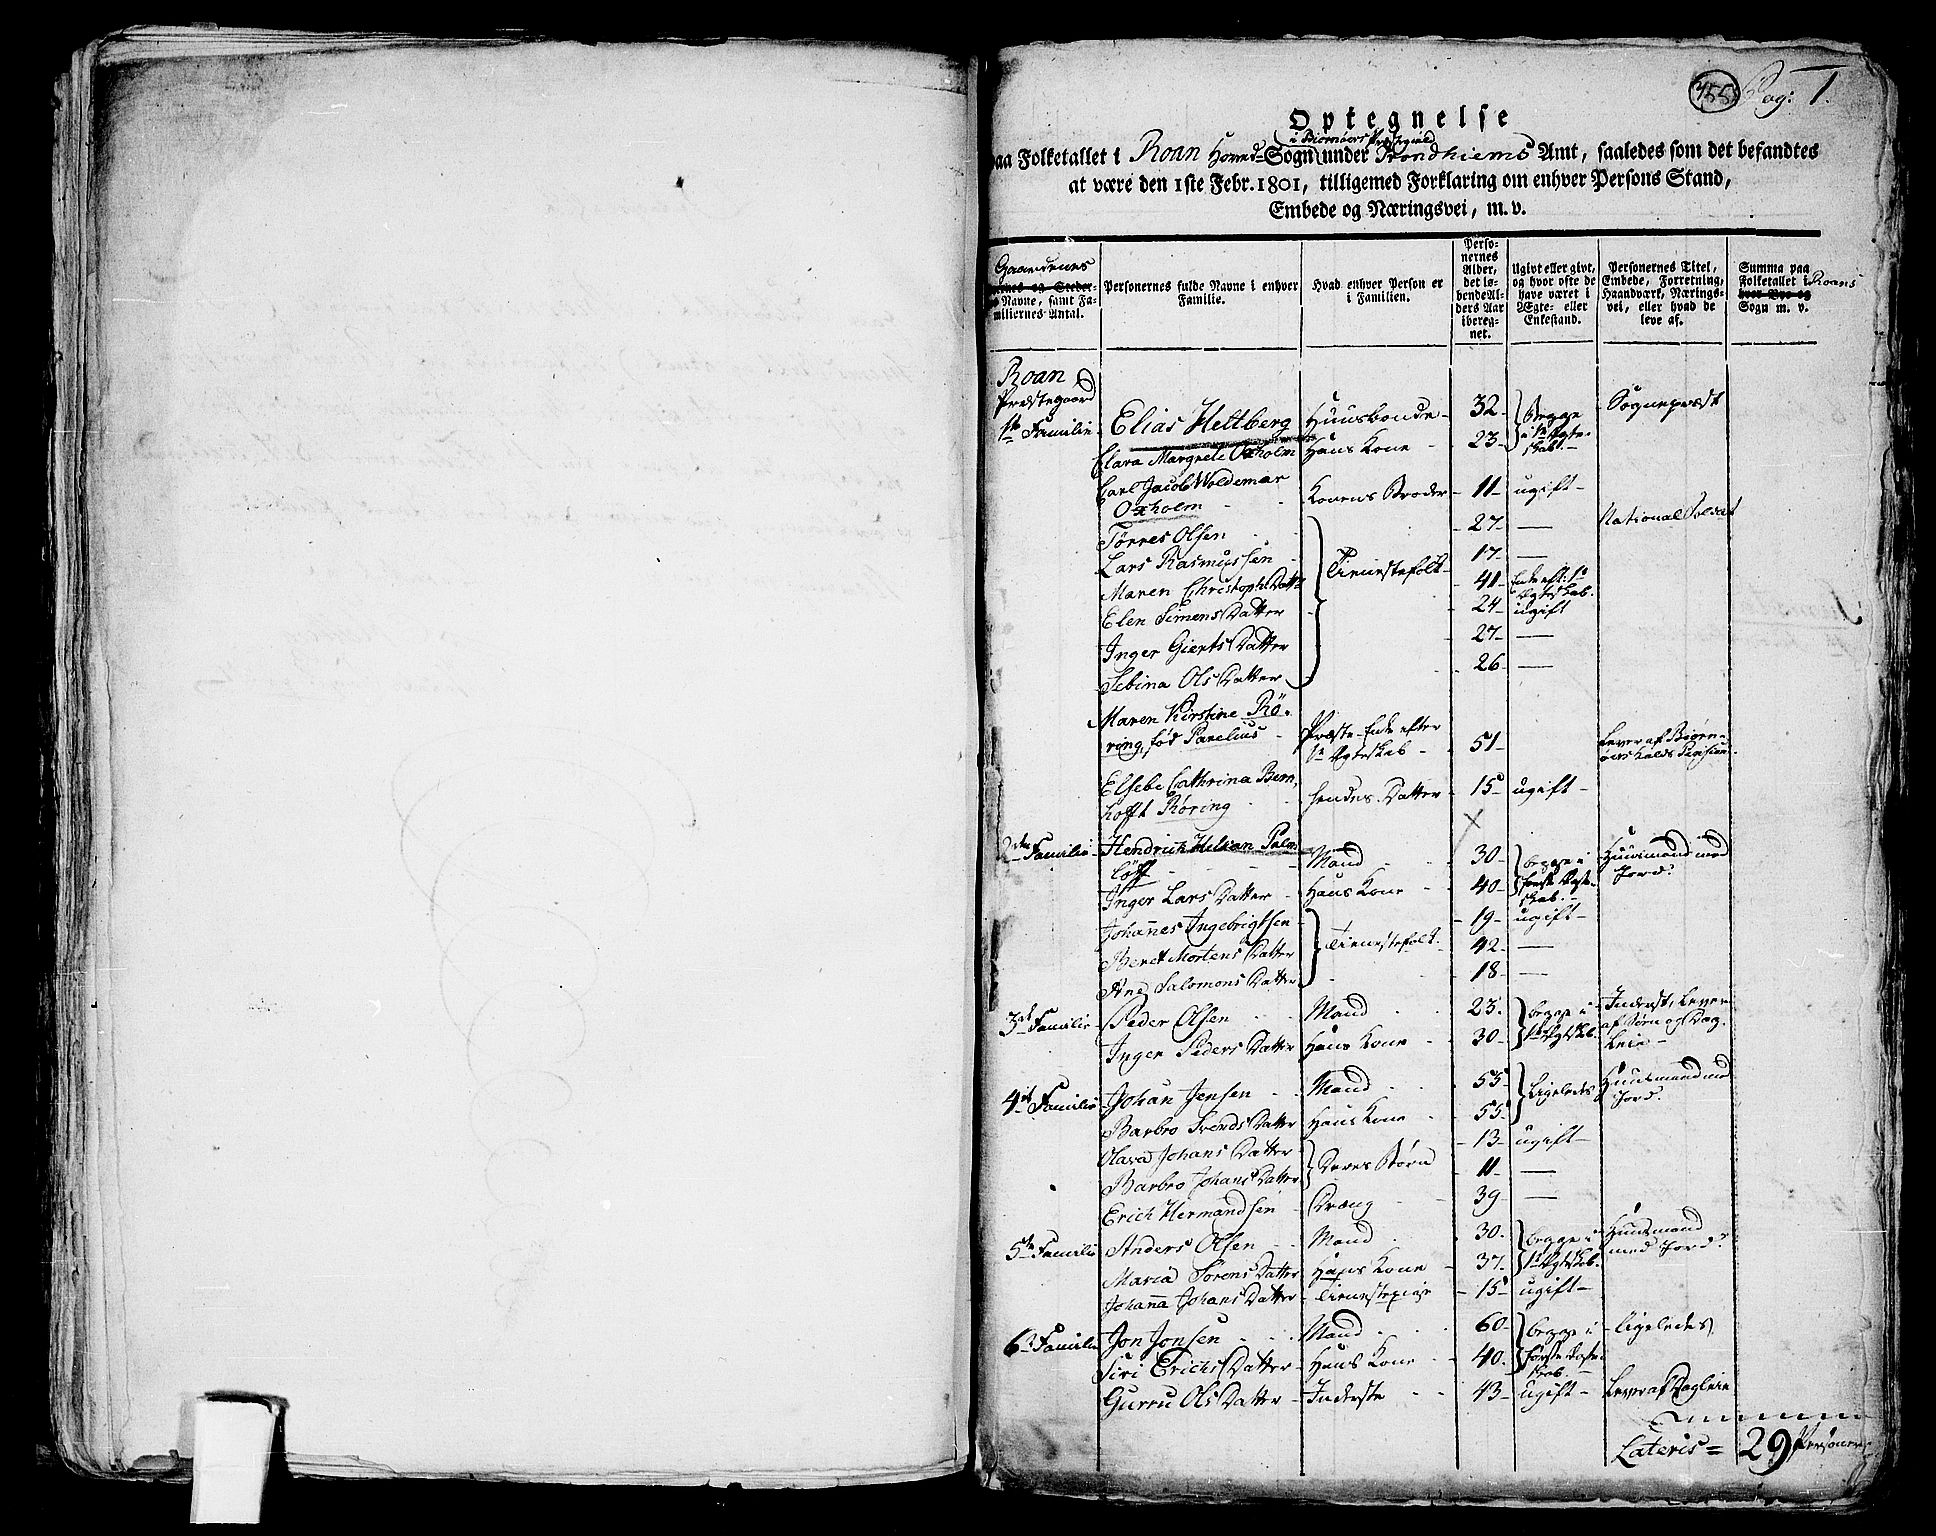 Pag: 1.
Optegnelse
i Biornöers Præstegield
paa Folketallet i Roan Hoved-Sogn under Trondhiems Amt, saaledes som det befandtes
at være den 1ste Febr. 1801, tilligemed Forklaring om enhver Persons Stand,
Embede og Næringsvei, m. v.
Gaardenes
Navne, samt Fa-
miliernes Antal.
Personernes fulde Navne i enhver
Familie.
Hvad enhver Person er
i Familien.
Perso-
nernes
Alder,
det lø-
bende Al-
ders Aar
iberegnet.
Ugivt eller givt,
og hvor ofte de
have været i
Ægte- eller
Enkestand.
Personernes Titel,
Embede, Forretning,
Haandværk, Nærings-
vei, eller hvad de
leve af.
Summa paa
Folketallet i Roans
hver Bye og
Sogn m. v.
Roan
Præstegaard
1te Familie Elias Heltberg Huusbonde 32 begge i 1te Ægteskab Sognepræst
Clara Margrete Oxholm Hans Kone 23
Carl Jacob Woldemar
Oxholm Konens Broder 11 ugift
Tørres Olsen 27 — National Soldat
Lars Rasmussen Tienestefolk 17 —
Maren Christophs Datter 41 Enke eft: 1te Ægteskab.
Elen Simens Datter 24 ugift
Inger Gierts Datter 27 —
Sebina Ols Datter 26 —
Maren Kirstine Rö-
ring, fød Parelius Præste-Enke efter 1te Ægteskab 51 Lever af Biørn-
öers Kalds Pension
Elsebe Cathrina Bern,
hofft Röring hendes Datter 15 ugift
2den Familie Hendrich Palm
löff Mand 30 begge i første Ægteskab. Huusmand med Jord
Inger Lars Datter Hans Kone 40
Johannes Ingebrigtsen 19 ugift
Beret Mortens Datter Tienestefolk 42 —
Ane Salomons Datter 18 —
3de Familie Peder Olsen Mand 23 begge i 1te Ægteskab. Inderst, Lever
af Børn og Dag
Leie
Inger Peders Datter Hans Kone 30
4de Familie Johan Jensen Mand 55 Ligeledes Huusmand med Jord
Barbro Svends Datter Hans Kone 55
Olava Johans Datter Deres Børn 13 ugift
Barbro Johans Datter 11 —
Erich Hermandsen Dreng 39 —
5te Familie Anders Olsen Mand 30 begge i 1te Ægteskab. Huusmand
med Jord
Maria Sörens Datter Hans Kone 37
Johanna Johans Datter Tienestepige 15 ugift
6te Familie Jon Jonsen Mand 60 begge i første Ægteskab ligeledes
Siri Erichs Datter Hans Kone 40
Gurru Ols Datter Inderste 43 ugift Lever af Dagleie
Lateris = 29 Personer